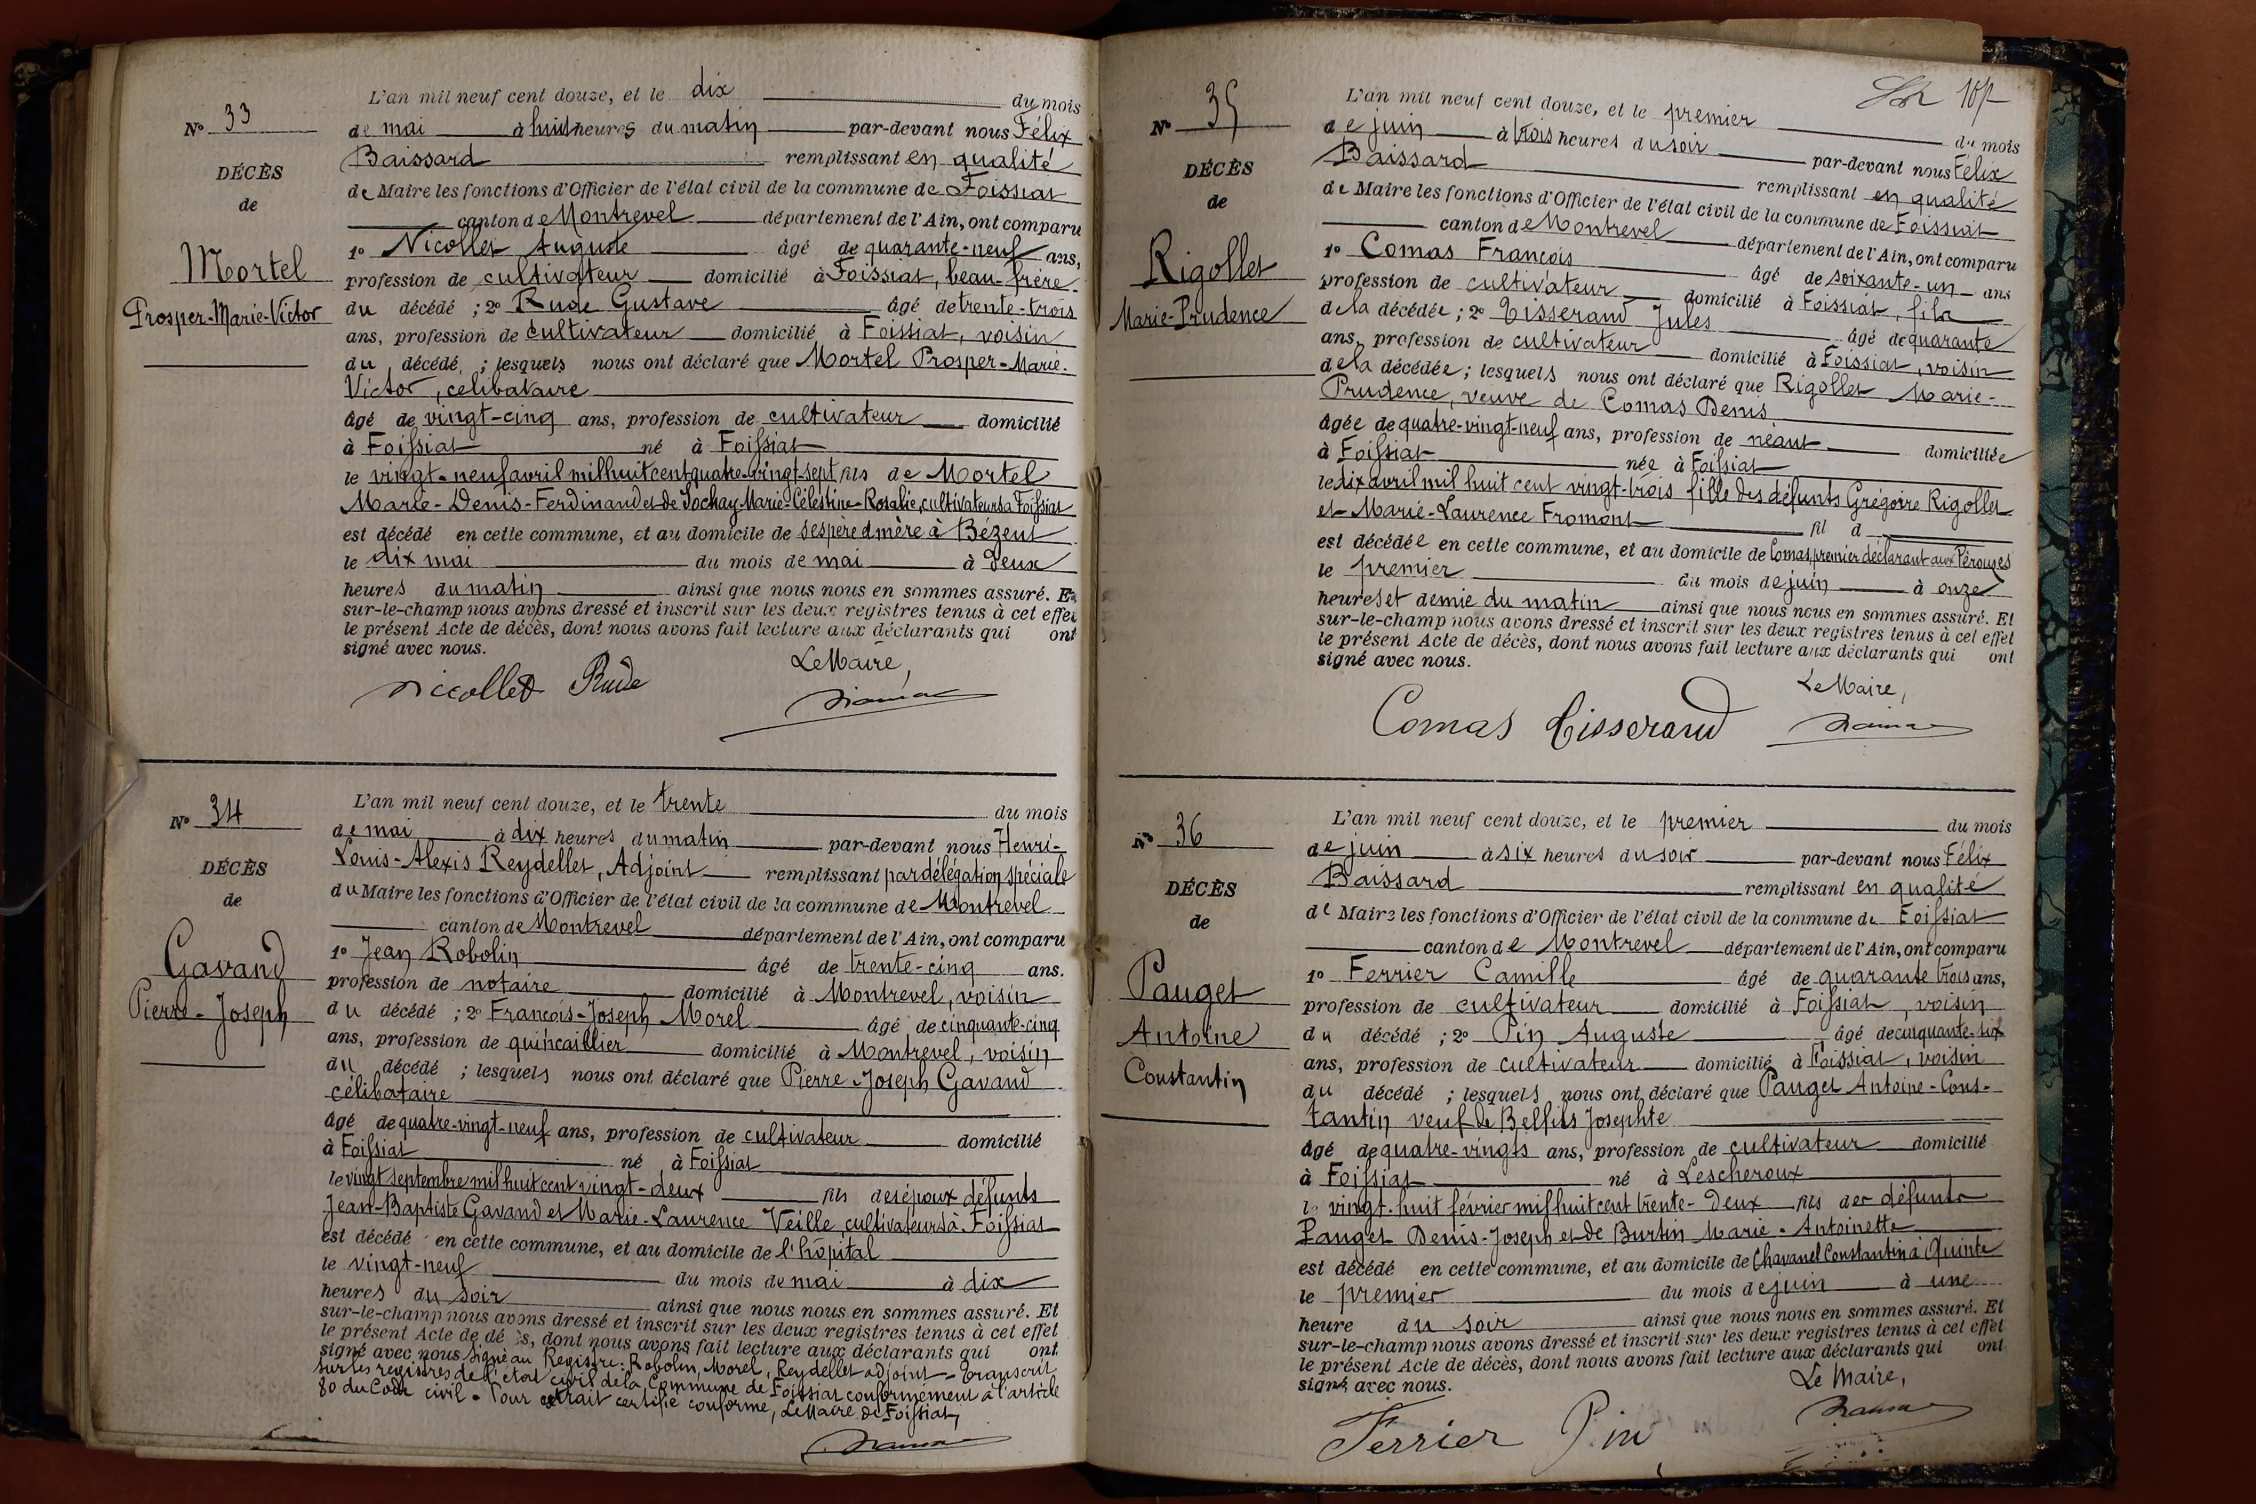 N° 33
DÉCÈS
de
Mortel
Prosper-Marie-Victor
L'an mil neuf cent douze, et le dix du mois
de mai à huit heures du matin par-devant nous Félix
Baissard remplissant en qualité
de Maire les fonctions d'Officier de l'état civil de la commune de Foissiat
canton de Montrevel département de l'Ain, ont comparu
1° Nicollet Auguste âgé de quarante-neuf ans,
profession de cultivateur domicilié à Foissiat, beau-frère
du décédé ; 2° Rude Gustave âgé de trente-trois
ans, profession de cultivateur domicilié à Foissiat, voisin
du décédé ; lesquels nous ont déclaré que Mortel Prosper-Marie-
Victor, célibataire
âgé de vingt-cinq ans, profession de cultivateur domicilié
à Foissiat né à Foissiat
le vingt-neuf avril mil huit cent quatre-vingt-sept fils de Mortel
Marie-Denis-Ferdinand et de Sochay Marie-Célestine-Rosalie, cultivateurs à Foissiat
est décédé en cette commune, et au domicile de ses père et mère à Bézent
le dix mai du mois de mai à deux
heures du matin ainsi que nous nous en sommes assuré. Et
sur-le-champ nous avons dressé et inscrit sur les deux registres tenus à cet effet
le présent Acte de décès, dont nous avons fait lecture aux déclarants qui ont
signé avec nous.
Le Maire,
Nicollet Rude
N° 34
DÉCÈS
de
Gavand
Pierre-Joseph
L'an mil neuf cent douze, et le trente du mois
de mai à dix heures du matin par-devant nous Henri-
Louis-Alexis Reydellet, Adjoint remplissant par délégation spéciale
du Maire les fonctions d'Officier de l'état civil de la commune de Montrevel
canton de Montrevel département de l'Ain, ont comparu
1° Jean Robolin âgé de trente-cinq ans.
profession de notaire domicilié à Montrevel, voisin
du décédé ; 2° François-Joseph Morel âgé de cinquante-cinq
ans, profession de quincaillier domicilié à Montrevel, voisin
du décédé ; lesquels nous ont déclaré que Pierre-Joseph Gavand
célibataire
âgé de quatre-vingt-neuf ans, profession de cultivateur domicilié
à Foissiat né à Foissiat
le vingt septembre mil huit cent vingt-deux fils des époux défunts
Jean-Baptiste Gavand et Marie-Laurence Veille, cultivateurs à Foissiat
est décédé en cette commune, et au domicile de l'hôpital
le vingt-neuf du mois de mai à dix
heures du soir ainsi que nous nous en sommes assuré. Et
sur-le-champ nous avons dressé et inscrit sur les deux registres tenus à cet effet
le présent Acte de dé s, dont nous avons fait lecture aux déclarants qui ont
signé avec nous. Signé au Registre : Robolin, Morel, Reydellet adjoint - Transcrit
sur les registres de l'état civil de la Commune de Foissiat conformément à l'article
80 du Code civil. Pour extrait certifié conforme, Le Maire de Foissiat,
N° 35
DÉCÈS
de
Rigollet
Marie-Prudence
L'an mil neuf cent douze, et le premier du mois
de juin à trois heures du soir par-devant nous Félix
Baissard remplissant en qualité
de Maire les fonctions d'Officier de l'état civil de la commune de Foissiat
canton de Montrevel département de l'Ain, ont comparu
1° Comas François âgé de soixante-un ans
profession de cultivateur domicilié à Foissiat, fils
de la décédée ; 2° Tisserand Jules âgé de quarante
ans, profession de cultivateur domicilié à Foissiat, voisin
de la décédée ; lesquels nous ont déclaré que Rigollet Marie-
Prudence, veuve de Comas Denis
âgée de quatre-vingt-neuf ans, profession de néant domiciliée
à Foissiat née à Foissiat
le dix avril mil huit cent vingt-trois fille des défunts Grégoire Rigollet
et Marie-Laurence Fromont fil d
est décédée en cette commune, et au domicile de Comas, premier déclarant aux Pérouses
le premier du mois de juin à onze
heures et demie du matin ainsi que nous nous en sommes assuré. Et
sur-le-champ nous avons dressé et inscrit sur les deux registres tenus à cet effet
le présent Acte de décès, dont nous avons fait lecture aux déclarants qui ont
signé avec nous.
Le Maire,
Comas Tisserand
N° 36
DÉCÈS
de
Pauget
Antoine
Constantin
L'an mil neuf cent douze, et le premier du mois
de juin à six heures du soir par-devant nous Félix
Baissard remplissant en qualité
de Maire les fonctions d'Officier de l'état civil de la commune de Foissiat
canton de Montrevel département de l'Ain, ont comparu
1° Ferrier Camille âgé de quarante trois ans,
profession de cultivateur domicilié à Foissiat, voisin
du décédé ; 2° Pin Auguste âgé de cinquante-six
ans, profession de cultivateur domicilié à Foissiat, voisin
du décédé ; lesquels nous ont déclaré que Pauget Antoine-Cons-
tantin veuf de Belfils Josephte
âgé de quatre-vingts ans, profession de cultivateur domicilié
à Foissiat né à Lescheroux
le vingt-huit février mil huit cent trente-deux fils des défunts
Pauget Denis-Joseph et de Burtin Marie-Antoinette
est décédé en cette commune, et au domicile de Chavanel Constantin à Quinte
le premier du mois de juin à une
heure du soir ainsi que nous nous en sommes assuré. Et
sur-le-champ nous avons dressé et inscrit sur les deux registres tenus à cet effet
le présent Acte de décès, dont nous avons fait lecture aux déclarants qui ont
signé avec nous.
Le Maire,
Ferrier Pin